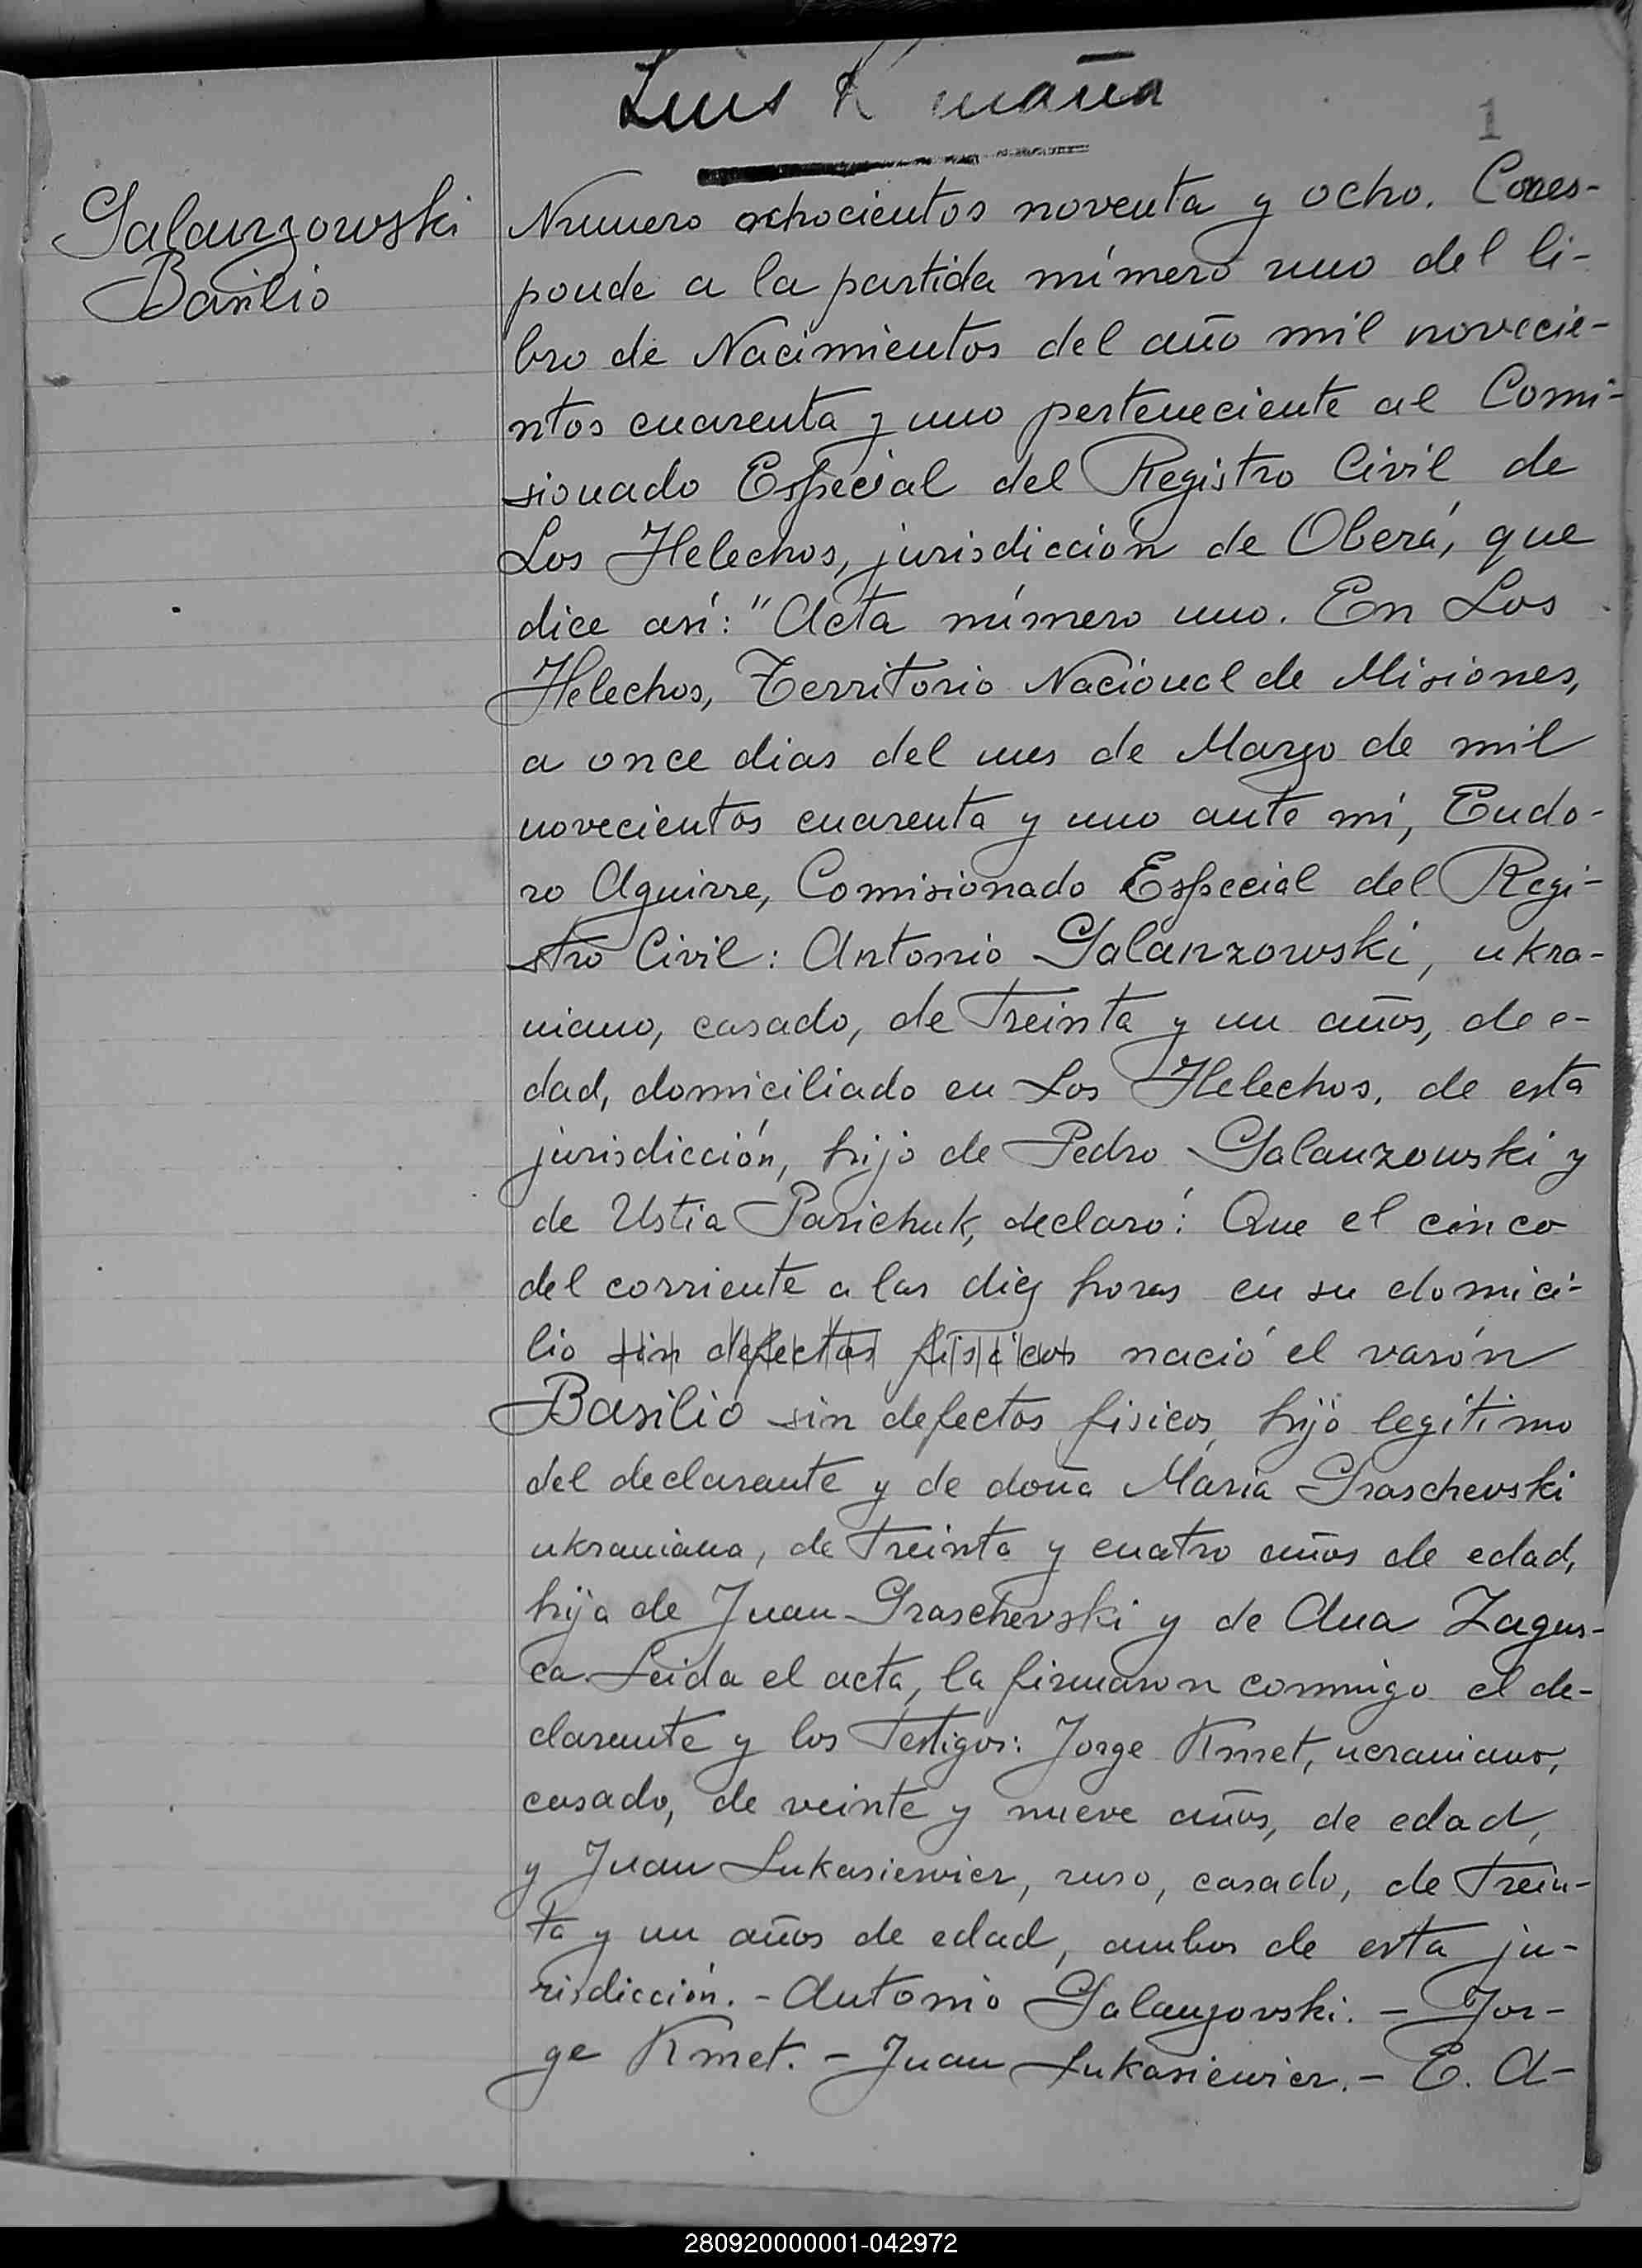 Luis K maña
1
Galanzowski
Basilio
Numero ochocientos noventa y ocho. Corres-
ponde a la partida número uno del li-
bro de Nacimientos del año mil novecie-
ntos cuarenta y uno perteneciente al Comi-
sionado Especial del Registro Civil de
Los Helechos, jurisdicción de Oberá, que
dice así: "Acta número uno. En Los
Helechos, Territorio Nacional de Misiones,
a once dias del mes de Marzo de mil
novecientos cuarenta y uno ante mí, Eudo-
ro Aguirre, Comisionado Especial del Regi-
stro Civil: Antonio Galanzowski, ukra-
niano, casado, de treinta y un años, de e-
dad, domiciliado en Los Helechos, de esta
jurisdicción, hijo de Pedro Galanzowski y
de Ustia Parichuk, declaró: Que el cinco
del corriente a las diez horas en su domici-
lio sin defectos fisicos nació el varón
Basilio sin defectos fisicos, hijo legítimo
del declarante y de doña María Graschevski
ukraniana, de treinta y cuatro años de edad,
hija de Juan Graschevski y de Ana Zagus-
ca. Leida el acta, la firmaron conmigo el de-
clarante y los testigos: Jorge Kmet, ucraniano,
casado, de veinte y nueve años, de edad,
y Juan Lukasiewicz, ruso, casado, de trein-
ta y un años de edad, ambos de esta ju-
risdicción. - Antonio Galanzovski. - Jor-
ge Kmet. - Juan Lukasiewicz. - E. A-
280920000001-042972